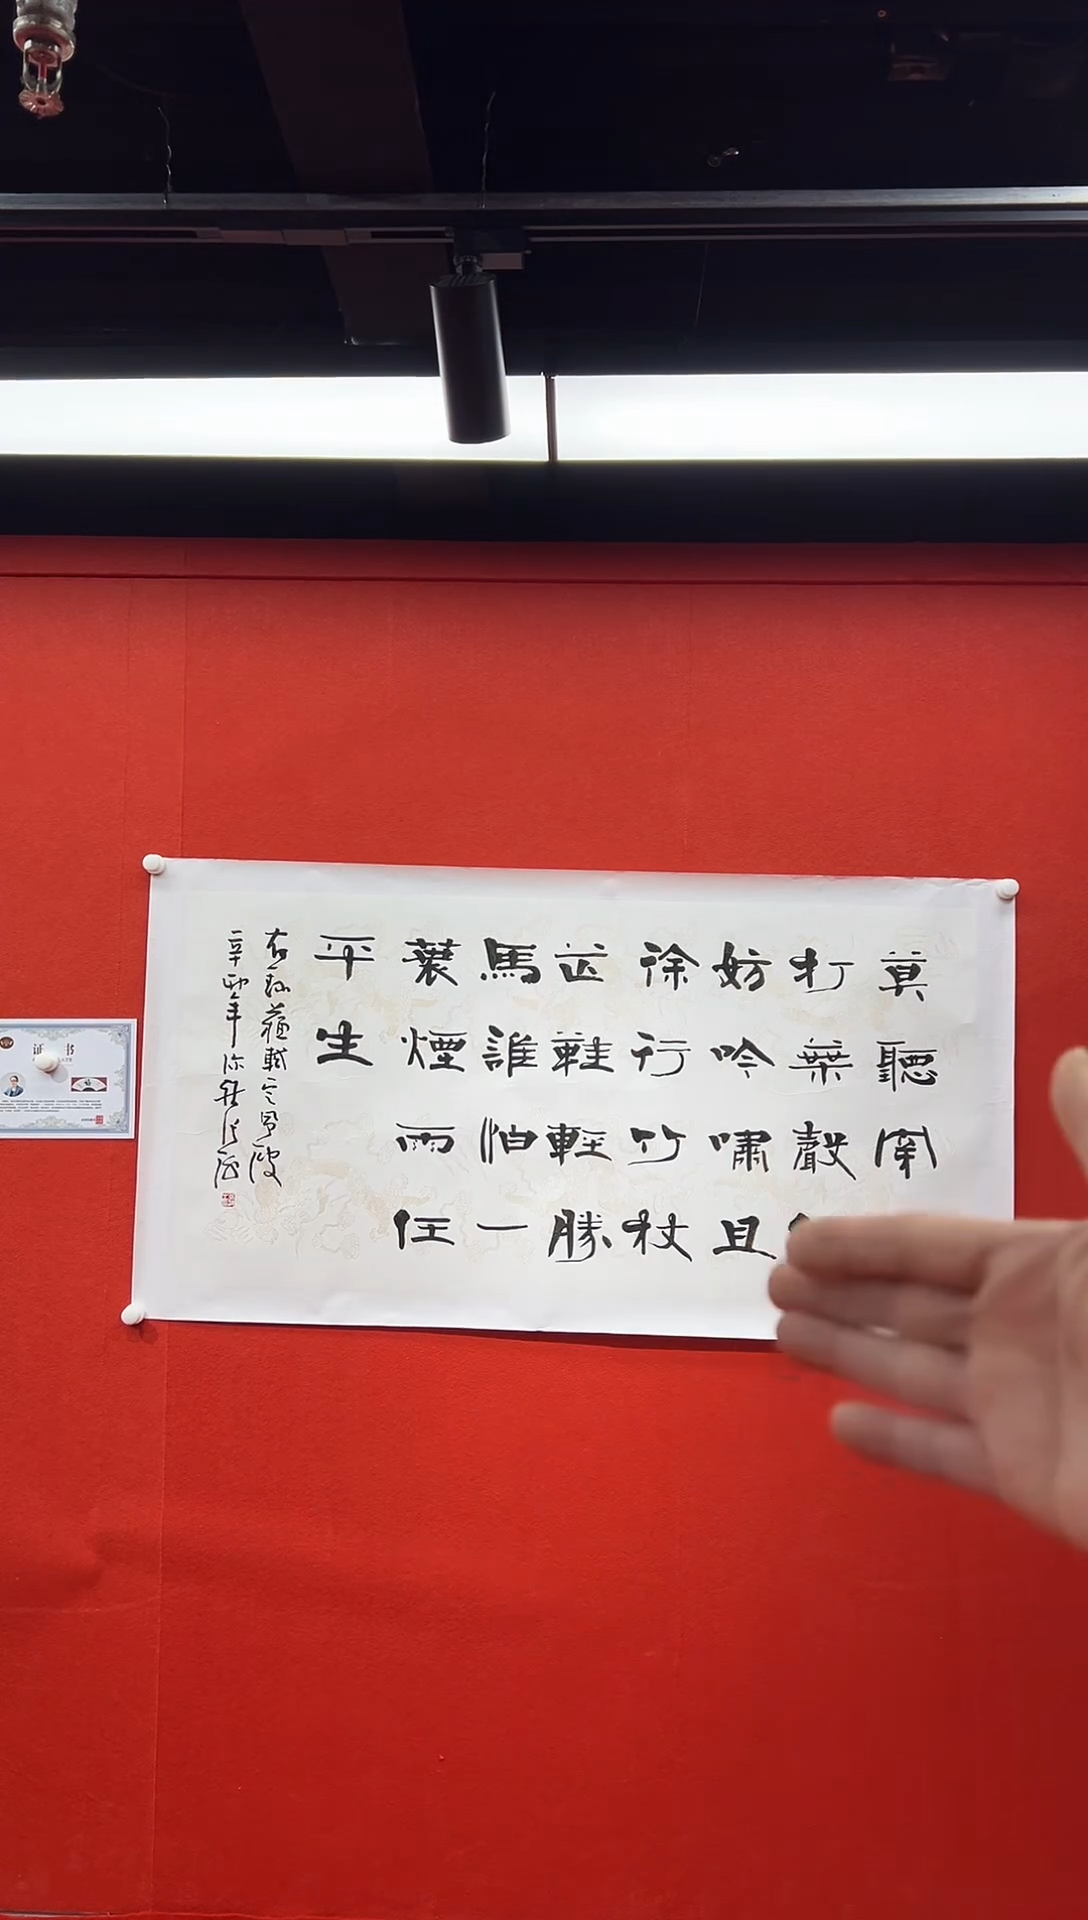 莫聽穿
打葉聲
妨吟嘯且
徐行竹杖
芒鞋輕勝
馬誰怕一
蓑煙雨任
平生
右録蘇軾定風波
辛卯年
证书